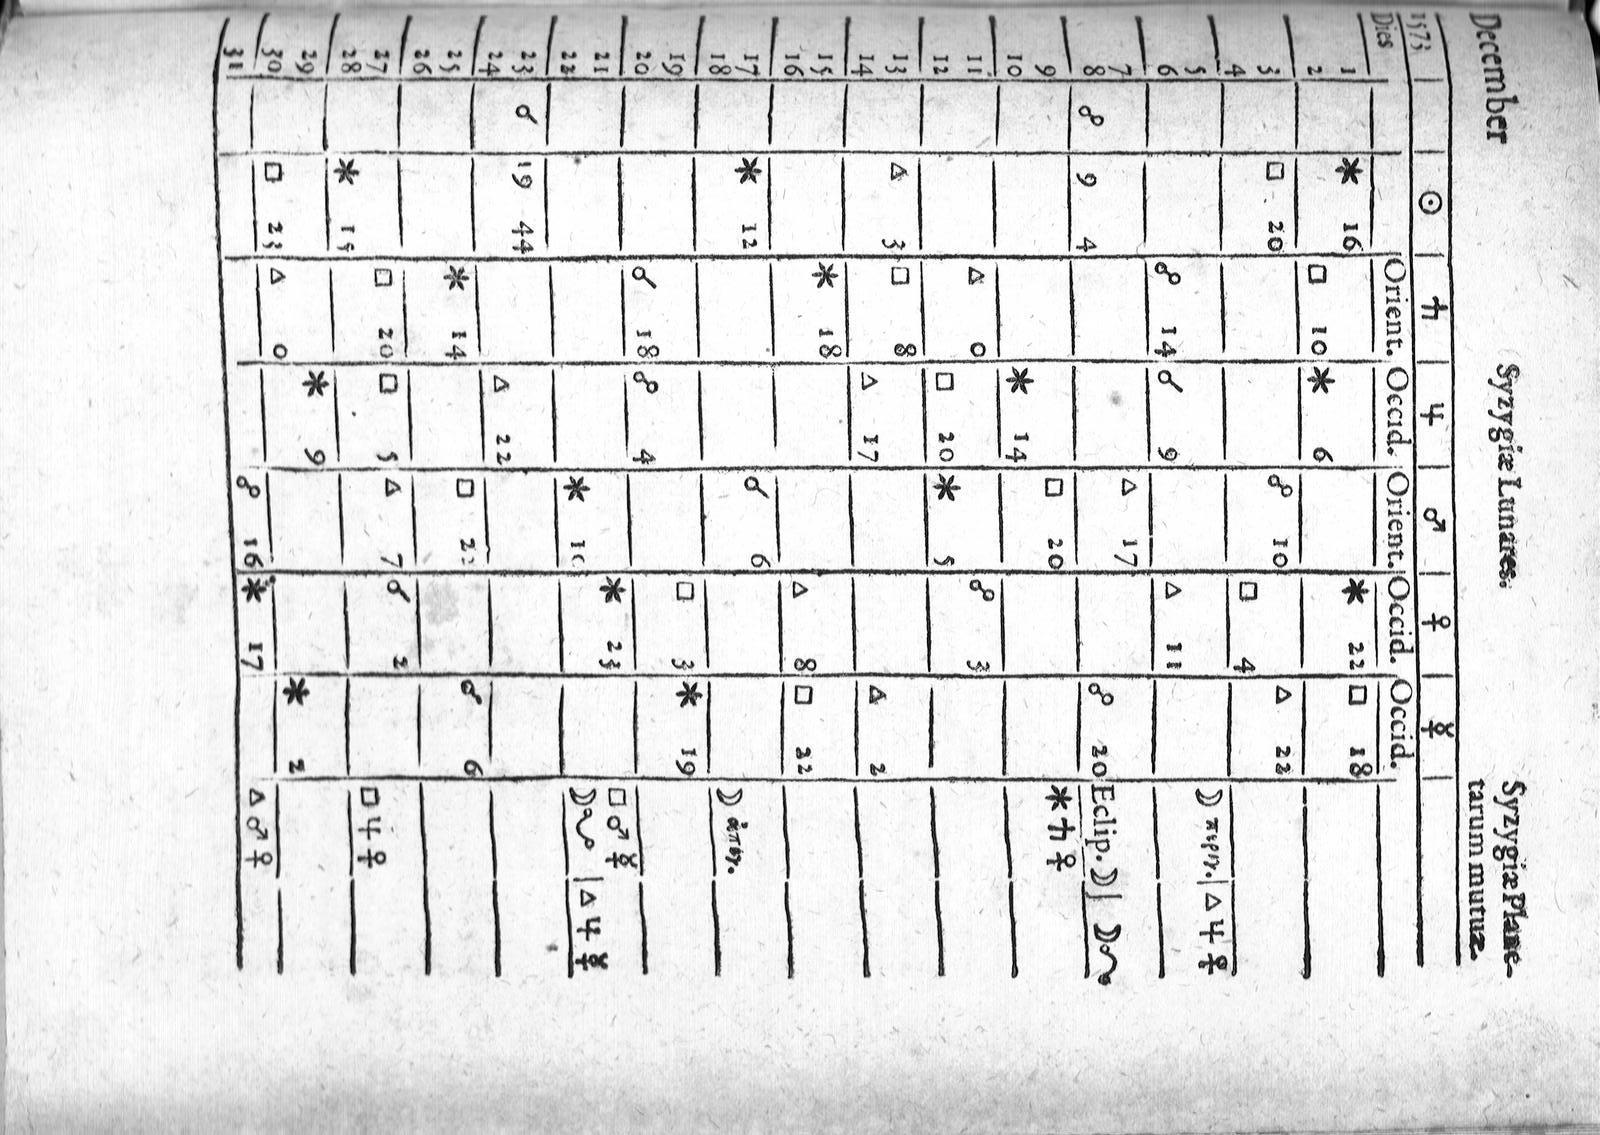 December Syzygiæ Lunares. Syzygiæ Plane-
tarum mutuæ.
1573 ☉ ♄ ♃ ♂ ♀ ☿
Dies Orient. Occid. Orient. Occid. Occid.
1 ⚹ 16 ⚹ 22 □ 18
2 □ 10 ⚹ 6
3 □ 20 ☍ 10 △ 22
4 □ 4
5 ☽ περιγ. | △ ♃ ♀
6 ☍ 14 ☌ 9 △ 11
7 △ 17
8 ☍ 9 4 ☍ 20 Eclip. ☽ | ☽ ☋
9 □ 20 ⚹ ♄ ♀
10 ⚹ 14
11 △ 0 ☍ 3
12 □ 20 ⚹ 5
13 △ 3 □ 8
14 △ 17 △ 2
15 ⚹ 18
16 △ 8 □ 22
17 ⚹ 12 ☌ 6
18 ☽ ἀπογ.
19 □ 3 ⚹ 19
20 ☌ 18 ☍ 4
21 ⚹ 23 □ ♂ ☿
22 ⚹ ☽ ☊ | △ ♃ ☿
23 ☌ 19 44
24 △ 22
25 ⚹ 14 □ ☌ 6
26
27 □ 20 □ 5 △ 7 ☌ 2
28 ⚹ 15 □ ♃ ♀
29 ⚹ 9
30 □ 23 △ 0 ⚹ 2
31 ☍ 16 ⚹ 17 △ ♂ ♀